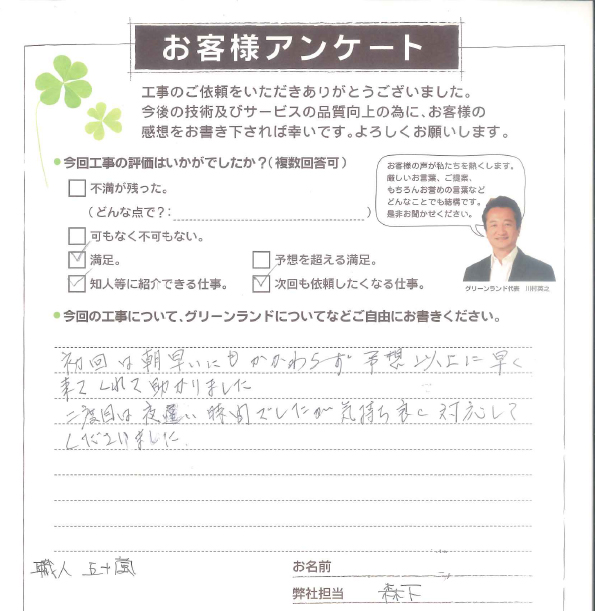 お客様アンケート
工事のご依頼をいただきありがとうございました。
今後の技術及びサービスの品質向上の為に、お客様の
感想をお書き下されば幸いです。よろしくお願いします。
•今回工事の評価はいかがでしたか？(複数回答可)
不満が残った。
（どんな点で？：）
可もなく不可もない。
満足。
予想を超える満足。
知人等に紹介できる仕事。
次回も依頼したくなる仕事。
お客様の声が私たちを熱くします。
厳しいお言葉、ご提案、
もちろんお誉めの言葉など
どんなことでも結構です。
是非お聞かせください。
グリーンランド代表 川村英之
•今回の工事について、グリーンランドについてなどご自由にお書きください。
初回は朝早いにもかかわらず予想以上に早く
来てくれて助かりました
二度目は夜遅い時間でしたが気持ち良く対応して
くださいました
職人 五十嵐
お名前
弊社担当 森下